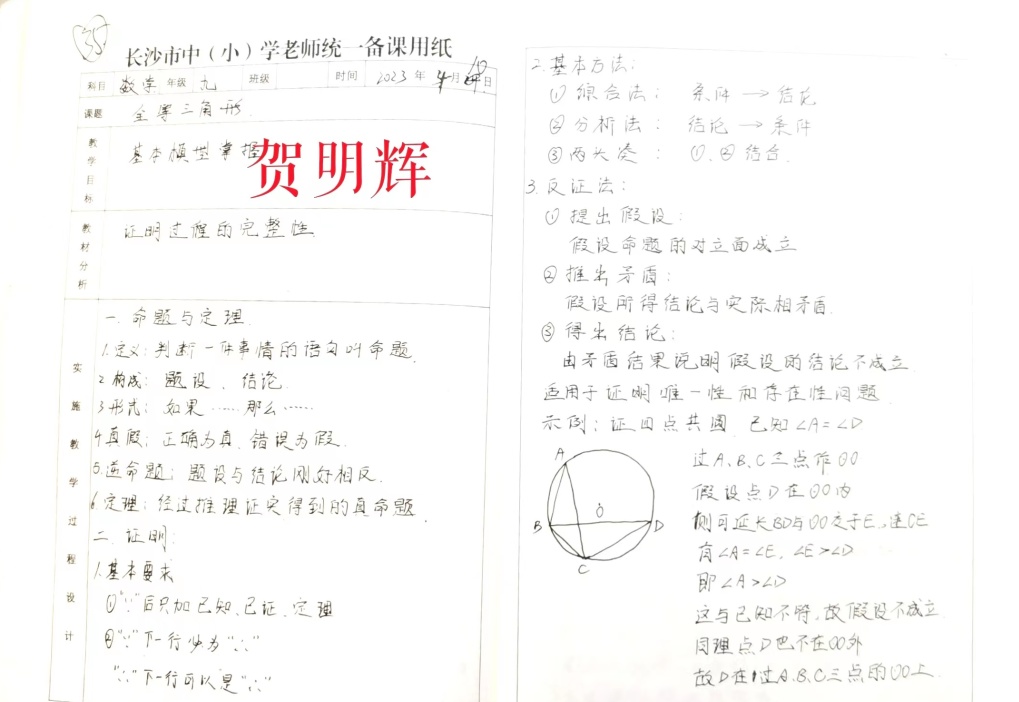 35
长沙市中（小）学老师统一备课用纸
科目 数学 年级 九 班级 时间 2023 年 月 10 日
课题 全等三角形.
教学目标 基本模型掌握
贺明辉
教材分析 证明过程的完整性
实施教学过程设计
一. 命题与定理.
1.定义: 判断一件事情的语句叫命题.
2 构成: 题设、结论.
3 形式: 如果……那么……
4 真假: 正确为真, 错误为假.
5.逆命题: 题设与结论刚好相反.
6.定理: 经过推理证实得到的真命题.
二. 证明:
1.基本要求
①"∵"后只加已知、已证、定理
②"∵"下一行必为"∴"
"∴"下一行可以是"∴"
2.基本方法:
① 综合法: 条件 → 结论
② 分析法: 结论 → 条件
③ 两头凑: ①、②结合.
3. 反证法:
① 提出假设:
假设命题的对立面成立
② 推出矛盾:
假设所得结论与实际相矛盾.
③ 得出结论:
由矛盾结果说明假设的结论不成立.
适用于证明唯一性和存在性问题
示例: 证四点共圆 已知∠A=∠D
A
B
C
D
O
过A、B、C三点作⊙O
假设点D在⊙O内
则可延长BD与⊙O交于E, 连CE
有∠A=∠E, ∠E>∠D
即∠A>∠D
这与已知不符, 故假设不成立.
同理点D也不在⊙O外
故D在过A、B、C三点的⊙O上.